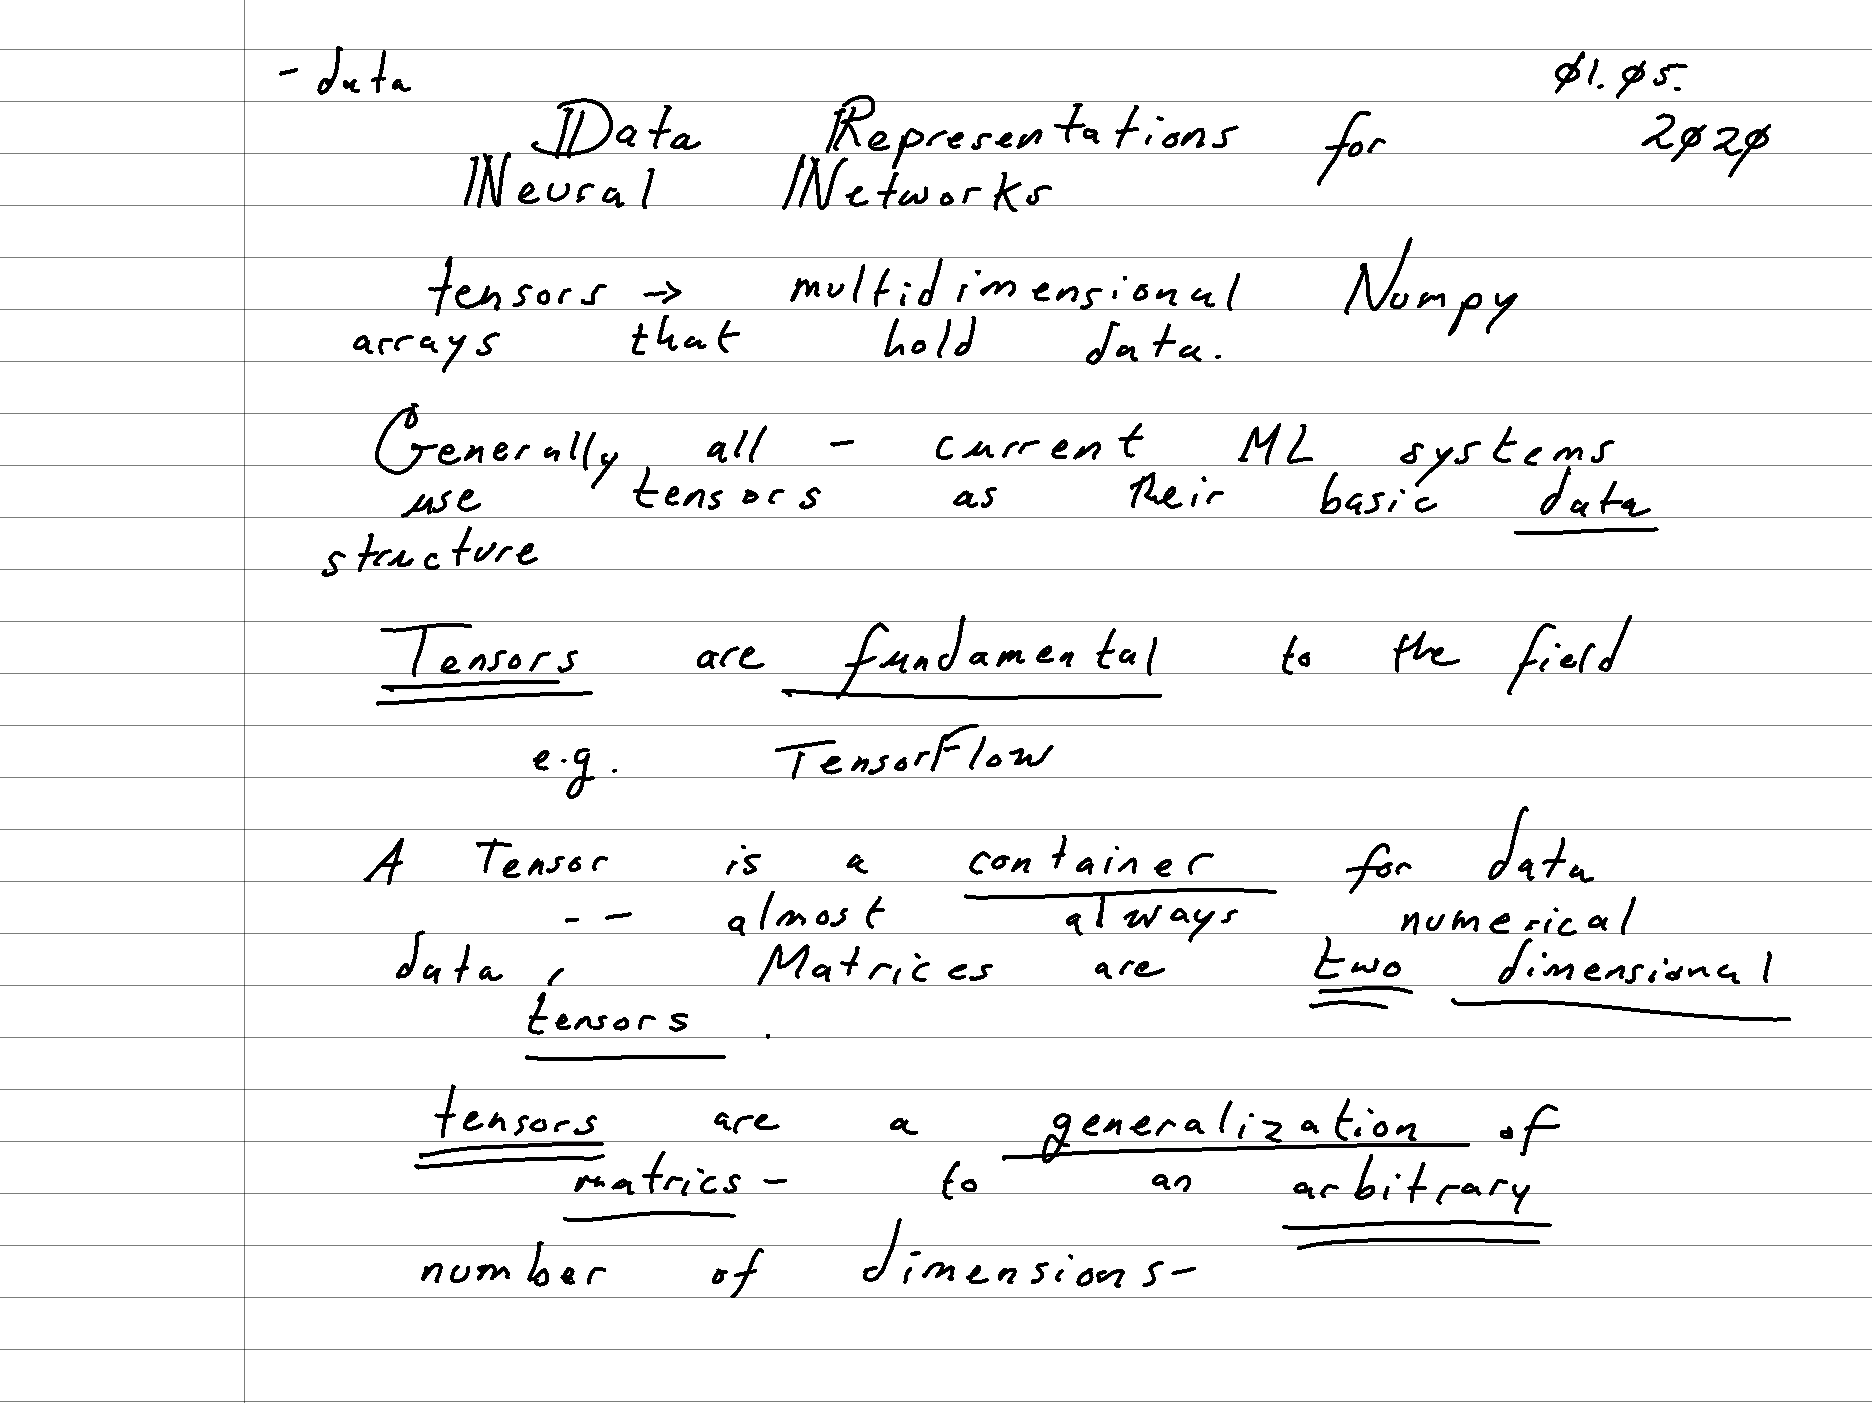 - data 01.05.
Data Representations for 2020
Neural Networks
tensors → multidimensional Numpy
arrays that hold data.
Generally, all - current ML systems
use tensors as their basic data
structure
Tensors are fundamental to the field
e.g. TensorFlow
A Tensor is a container for data
-- almost always numerical
data, Matrices are two dimensional
tensors.
tensors are a generalization of
matrics - to an arbitrary
number of dimensions-